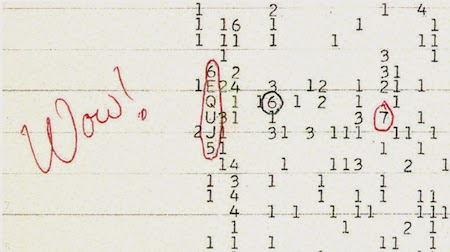 1 2 1 4
1 16 1 1 1
1 11 1 1 1
1 3 1
6 2 31
1E24 3 12 1 21 1
Wow!
Q 1 16 1 2 1 1 1
U31 1 3 7 1
2J 1 31 3 111 11 1
51 1 1
14 1 113 2 1
1 3 1 1 1
1 4 1 1 1 11
4 1 1 111 1 111
1 2 1